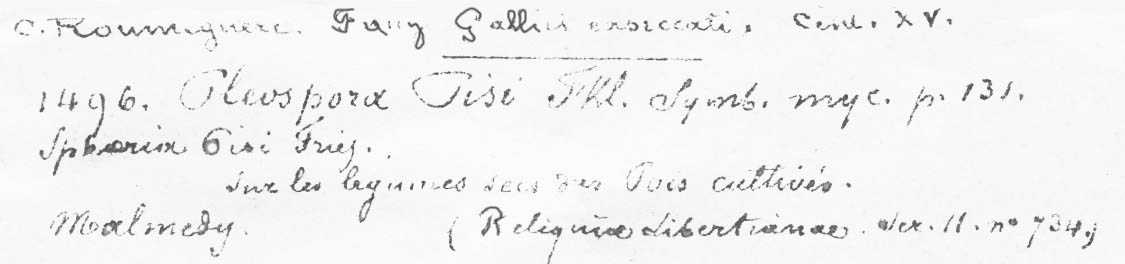 C. Roumeguere. Fung Gallici exsiccati. Cent. XV.
1496. Pleospora Pisi Fkl. Symb. myc. p. 131.
Sphaeria Pisi Fries.
Sur les legumes secs des Pois cultivés.
Malmedy. (Reliquiae Libertianae. Ser. II. no 734.)